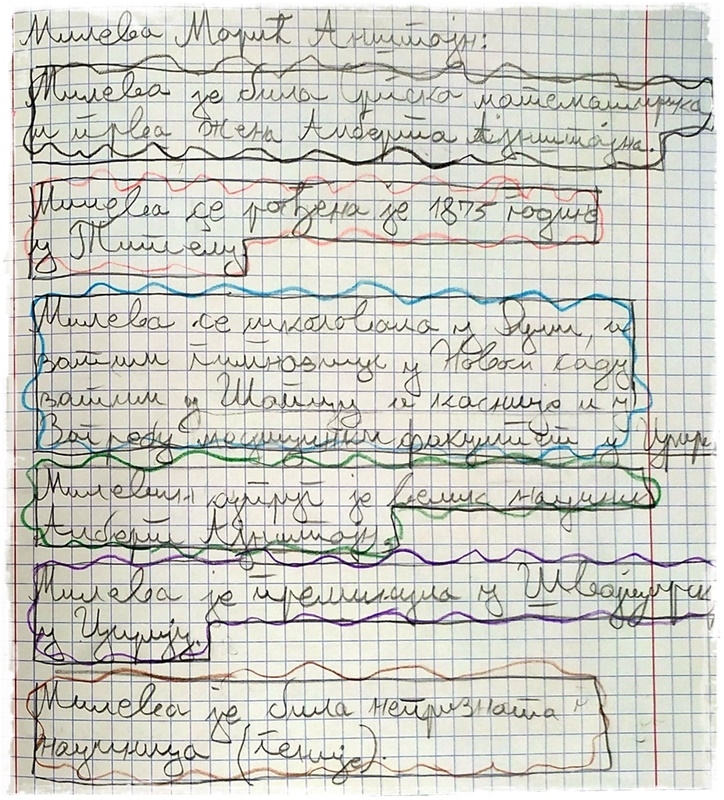 Милева Марић Ајнштајн:
Милева је била српска математичарка
и прва жена Алберта Ајнштајна.
Милева се рођена је 1875 године
у Тителу
Милева се школовала у Руми, и
затим гимназију у Новом саду
затим у Шапцу и касније и у
Загребу медицински факултет у Цирих
Милевин супруг је велик научник
Алберт Ајнштајн.
Милева је преминула у Швајцарск
у Цириху.
Милева је била непризната
научница (геније).